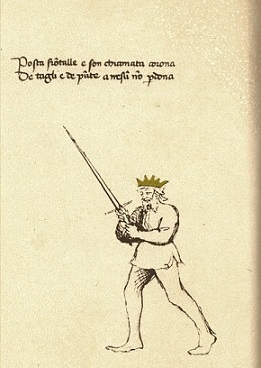 Posta frõtalle e son chiamata corona
De tagli e de pũte a nesũ nõ pdona